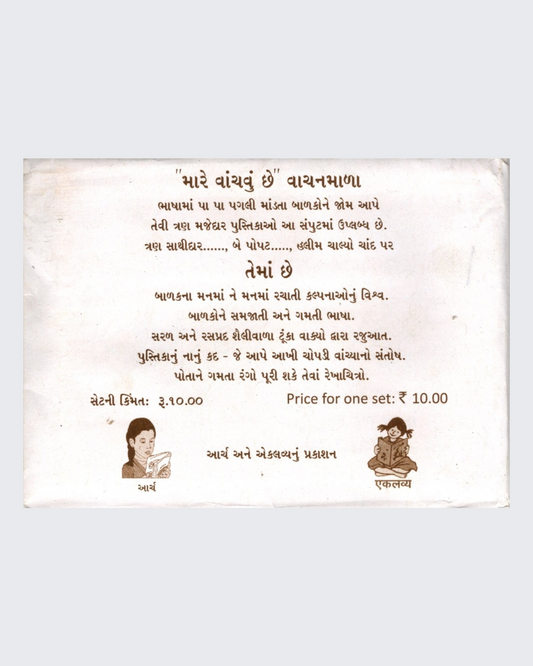 "મારે વાંચવું છે" વાચનમાળા
ભાષામાં પા પા પગલી માંડતા બાળકોને જોમ આપે
તેવી ત્રણ મજેદાર પુસ્તિકાઓ આ સંપુટમાં ઉપલબ્ધ છે.
ત્રણ સાથીદાર......, બે પોપટ....., હલીમ ચાલ્યો ચાંદ પર
તેમાં છે
બાળકના મનમાં ને મનમાં રચાતી કલ્પનાઓનું વિશ્વ.
બાળકોને સમજાતી અને ગમતી ભાષા.
સરળ અને રસપ્રદ શૈલીવાળા ટૂંકા વાક્યો દ્વારા રજુઆત.
પુસ્તિકાનું નાનું કદ - જે આપે આખી ચોપડી વાંચ્યાનો સંતોષ.
પોતાને ગમતા રંગો પૂરી શકે તેવાં રેખાચિત્રો.
સેટની કિંમત: રૂ.૧૦.૦૦ Price for one set: ₹ 10.00
આર્ચ અને એકલવ્યનું પ્રકાશન
આર્ચ एकलव्य